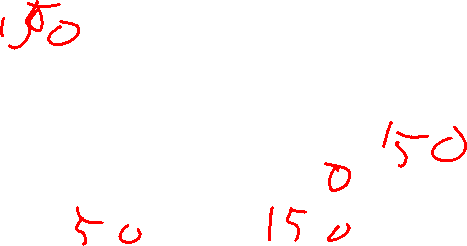 150
150
0
50 150